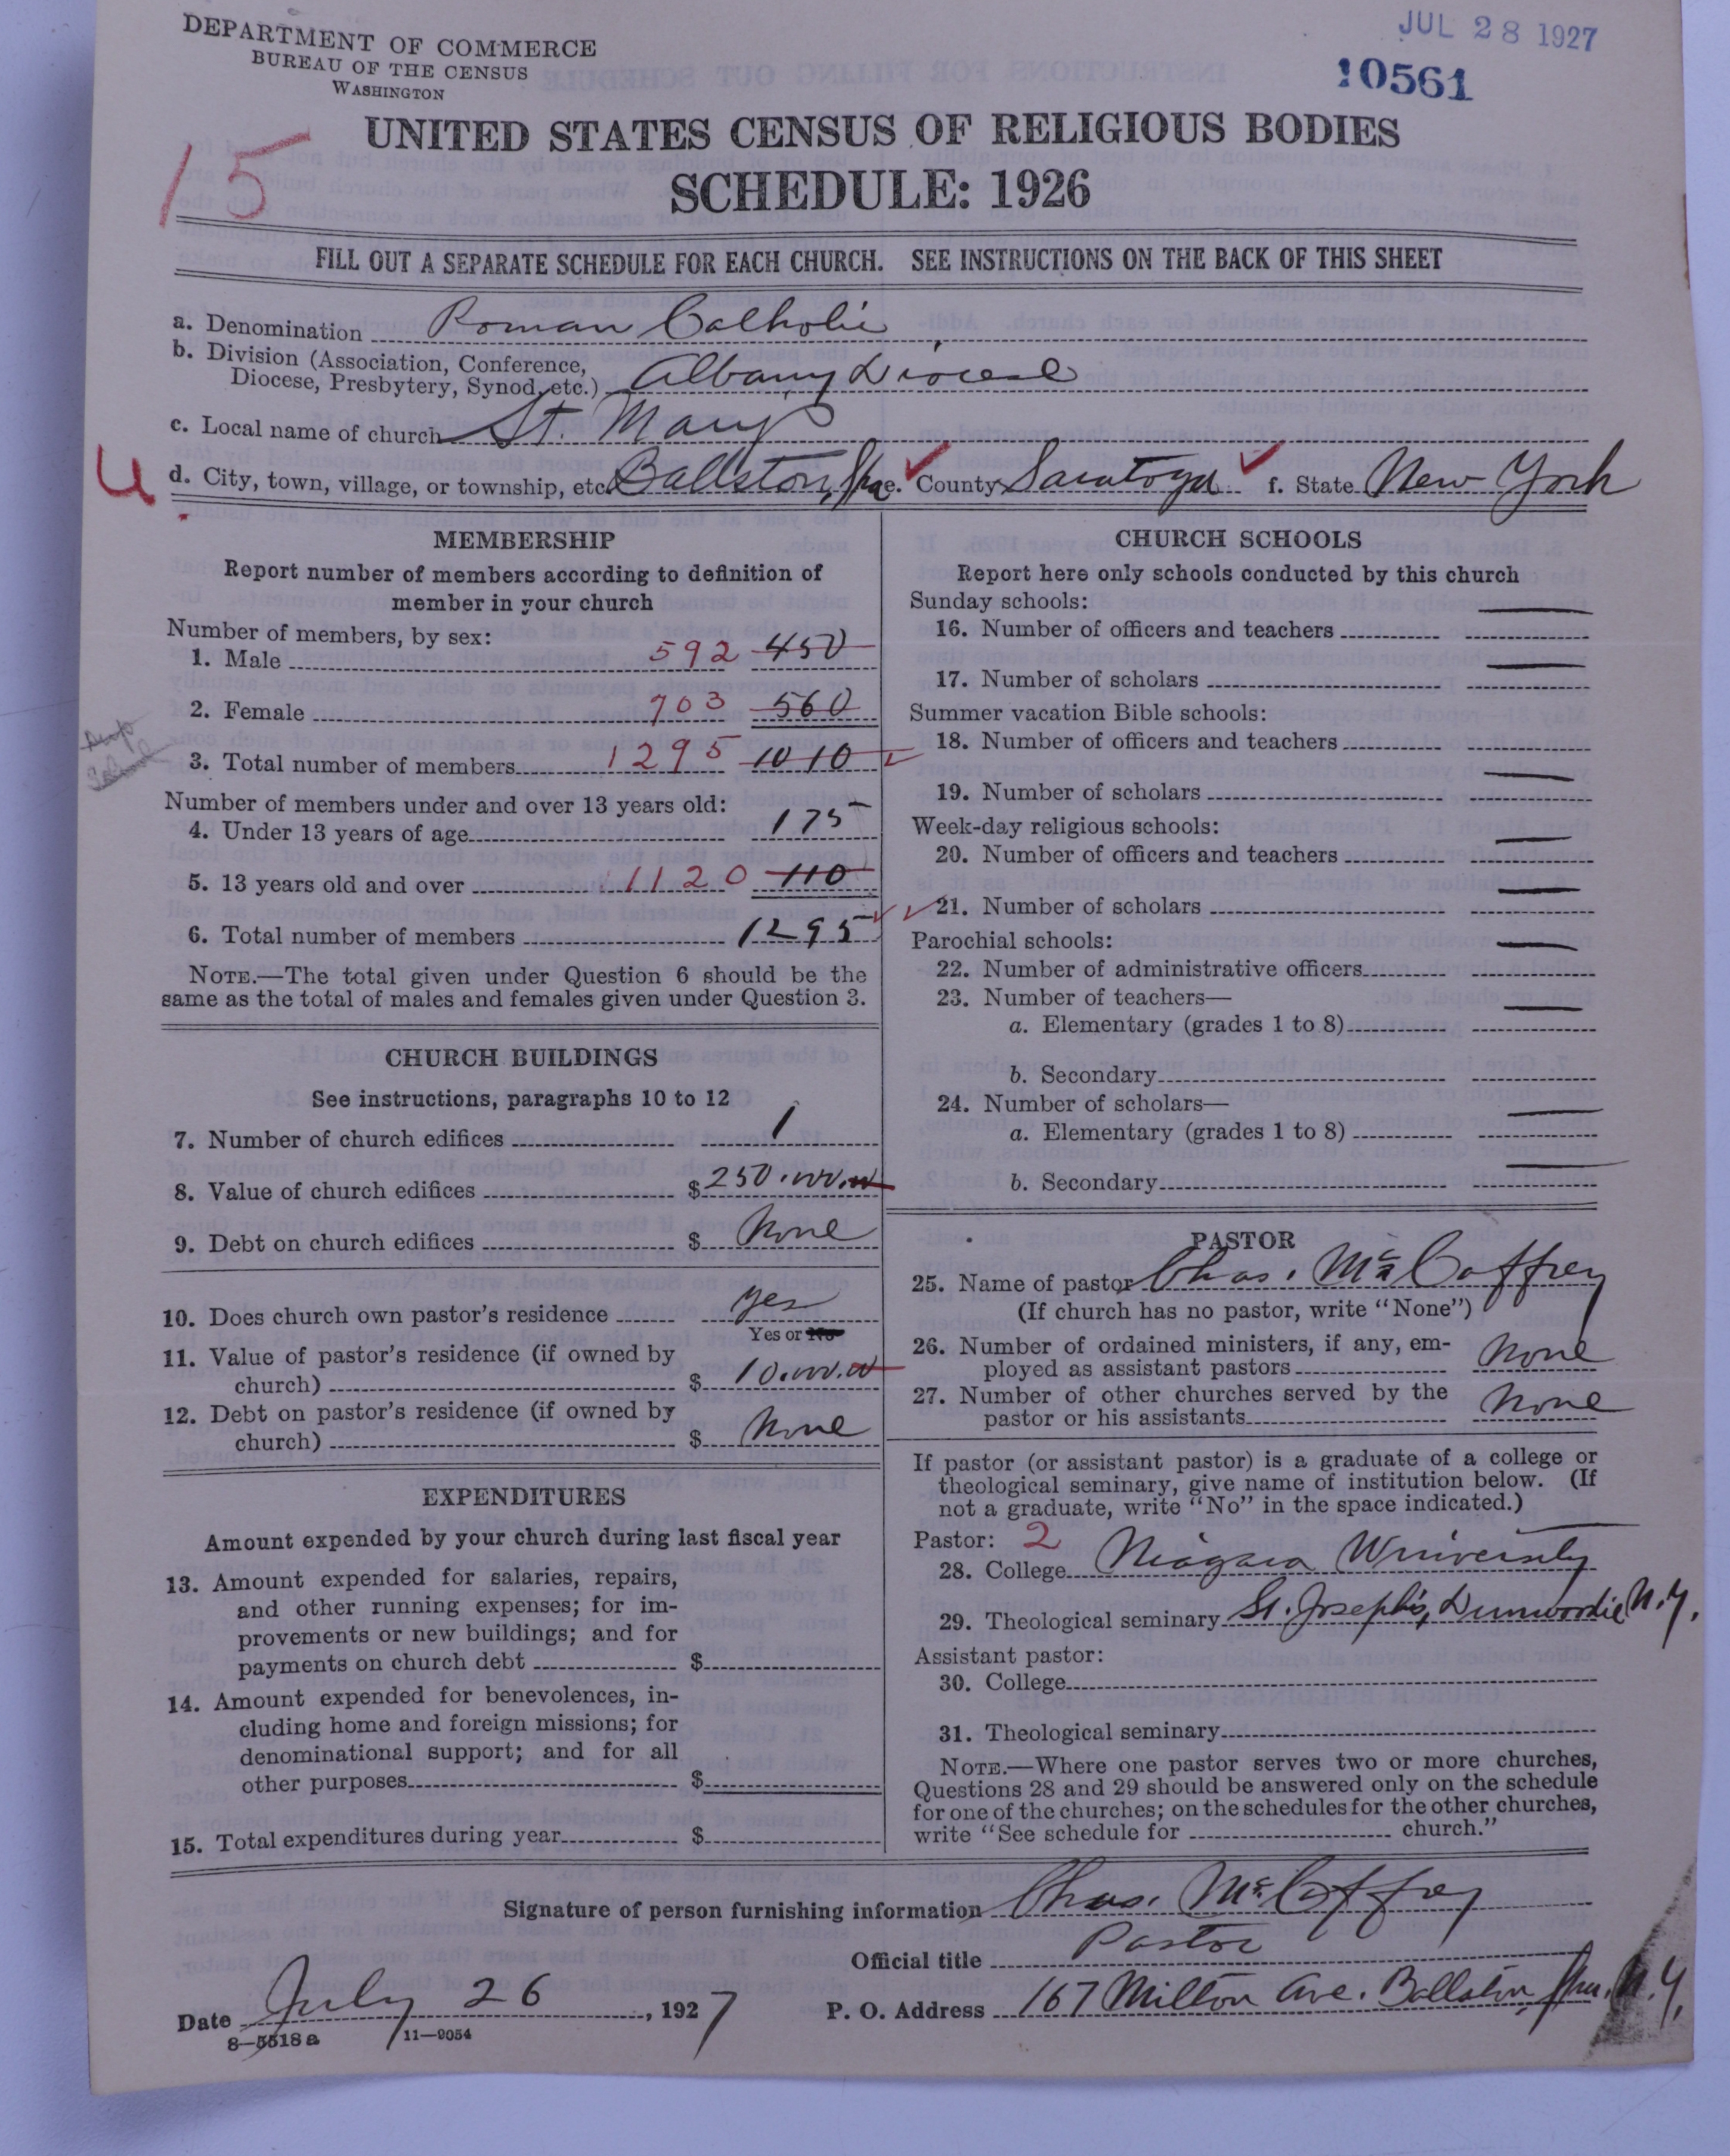 DEPARTMENT OF COMMERCE
BUREAU OF THE CENSUS
WASHINGTON
JUL 28 1927
10561
15
UNITED STATES CENSUS OF RELIGIOUS BODIES
SCHEDULE: 1926
FILL OUT A SEPARATE SCHEDULE FOR EACH CHURCH. SEE INSTRUCTIONS ON THE BACK OF THIS SHEET
a. Denomination Roman Catholic
b. Division (Association, Conference,
Diocese, Presbytery, Synod, etc.) Albany Diocese
c. Local name of church St. Mary's
d. City, town, village, or township, etc. Ballston, Spa e. County Saratoga f. State New York
MEMBERSHIP
Report number of members according to definition of
member in your church
Number of members, by sex:
1. Male 592 450
2. Female 703 560
3. Total number of members 1295 1010
Number of members under and over 13 years old:
4. Under 13 years of age 175
5. 13 years old and over 1120 110
6. Total number of members 1295
NOTE.—The total given under Question 6 should be the
same as the total of males and females given under Question 3.
CHURCH BUILDINGS
See instructions, paragraphs 10 to 12
7. Number of church edifices 1
8. Value of church edifices $ 250.000.00
9. Debt on church edifices $ None
10. Does church own pastor's residence yes
Yes or No
11. Value of pastor's residence (if owned by
church) $ 10.000.00
12. Debt on pastor's residence (if owned by
church) $ None
EXPENDITURES
Amount expended by your church during last fiscal year
13. Amount expended for salaries, repairs,
and other running expenses; for im-
provements or new buildings; and for
payments on church debt $
14. Amount expended for benevolences, in-
cluding home and foreign missions; for
denominational support; and for all
other purposes $
15. Total expenditures during year $
CHURCH SCHOOLS
Report here only schools conducted by this church
Sunday schools:
16. Number of officers and teachers
17. Number of scholars
Summer vacation Bible schools:
18. Number of officers and teachers
19. Number of scholars
Week-day religious schools:
20. Number of officers and teachers
21. Number of scholars
Parochial schools:
22. Number of administrative officers
23. Number of teachers—
a. Elementary (grades 1 to 8)
b. Secondary
24. Number of scholars—
a. Elementary (grades 1 to 8)
b. Secondary
PASTOR
25. Name of pastor Chas. McCaffrey
(If church has no pastor, write "None")
26. Number of ordained ministers, if any, em-
ployed as assistant pastors None
27. Number of other churches served by the
pastor or his assistants None
If pastor (or assistant pastor) is a graduate of a college or
theological seminary, give name of institution below. (If
not a graduate, write "No" in the space indicated.)
Pastor: 2
28. College Niagara University
29. Theological seminary St. Joseph's, Dunwoodie N.Y.
Assistant pastor:
30. College
31. Theological seminary
NOTE.—Where one pastor serves two or more churches,
Questions 28 and 29 should be answered only on the schedule
for one of the churches; on the schedules for the other churches,
write "See schedule for church."
Signature of person furnishing information Chas. McCaffrey
Official title Pastor
Date July 26, 1927 P. O. Address 167 Milton Ave. Ballston Spa. N.Y.
8—5518a 11—9054